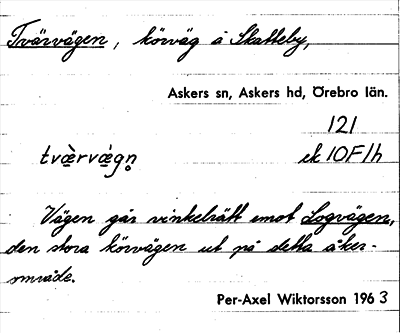 Tvärvägen, körväg å Skatteby,
Askers sn, Askers hd, Örebro län.
121
tvæ̀rvæ̀gn̥ ek 10F1h
Vägen går vinkelrätt emot Logvägen,
den stora körvägen ut på detta åker-
område.
Per-Axel Wiktorsson 1963